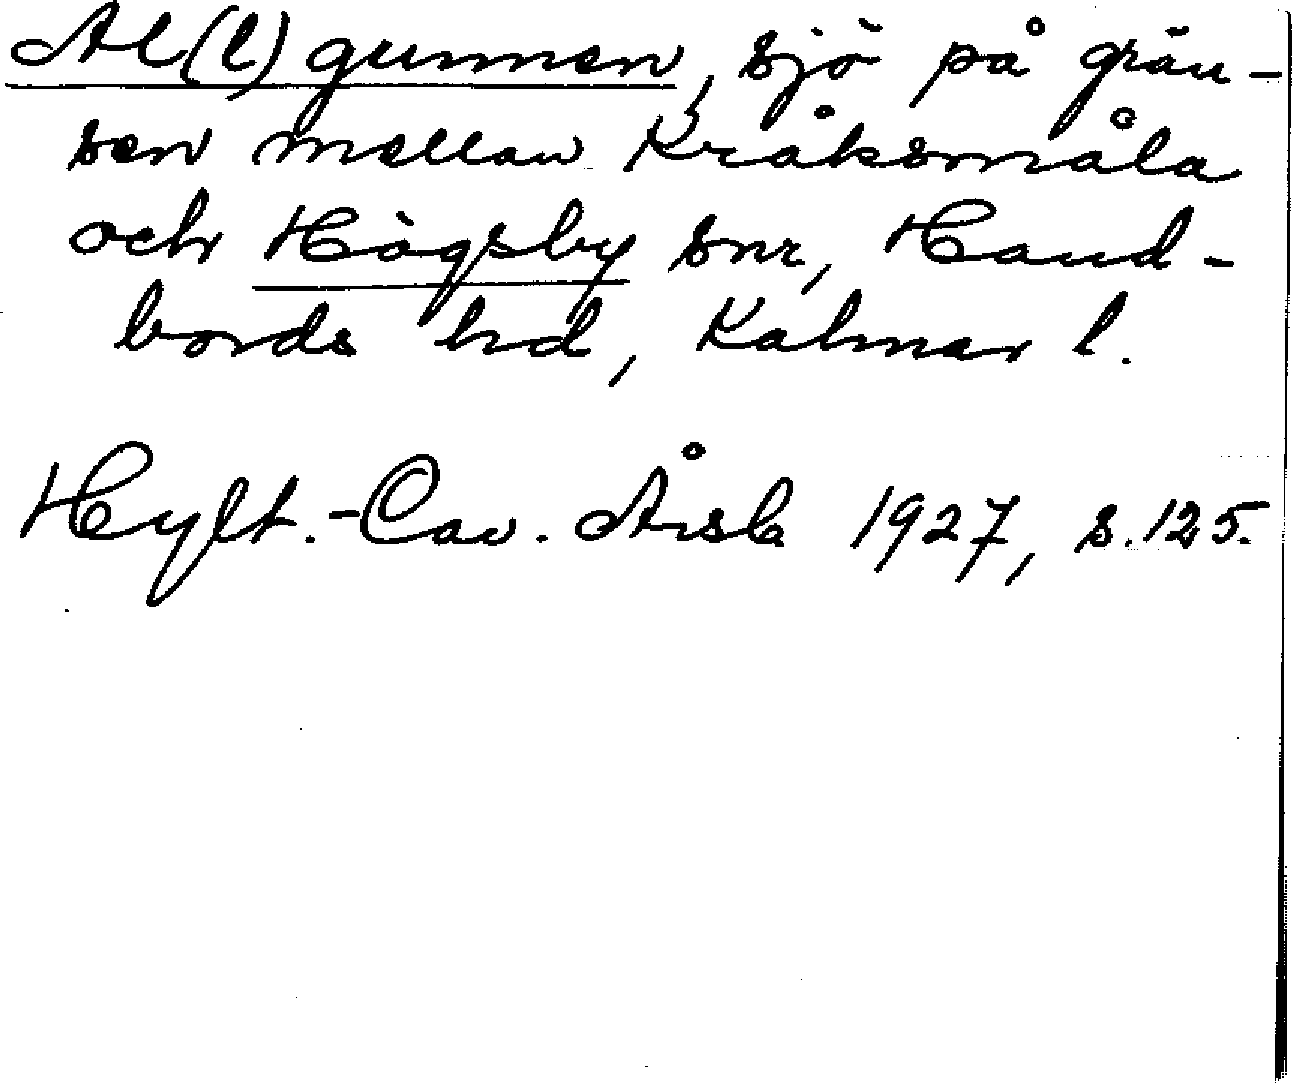 Al(l)gunnen, sjö på grän-
sen mellan Kråksmåla
och Högsby snr, Hand-
bords hd, Kalmar l.
Hylt.-Cav. Årsb 1927, s. 125.